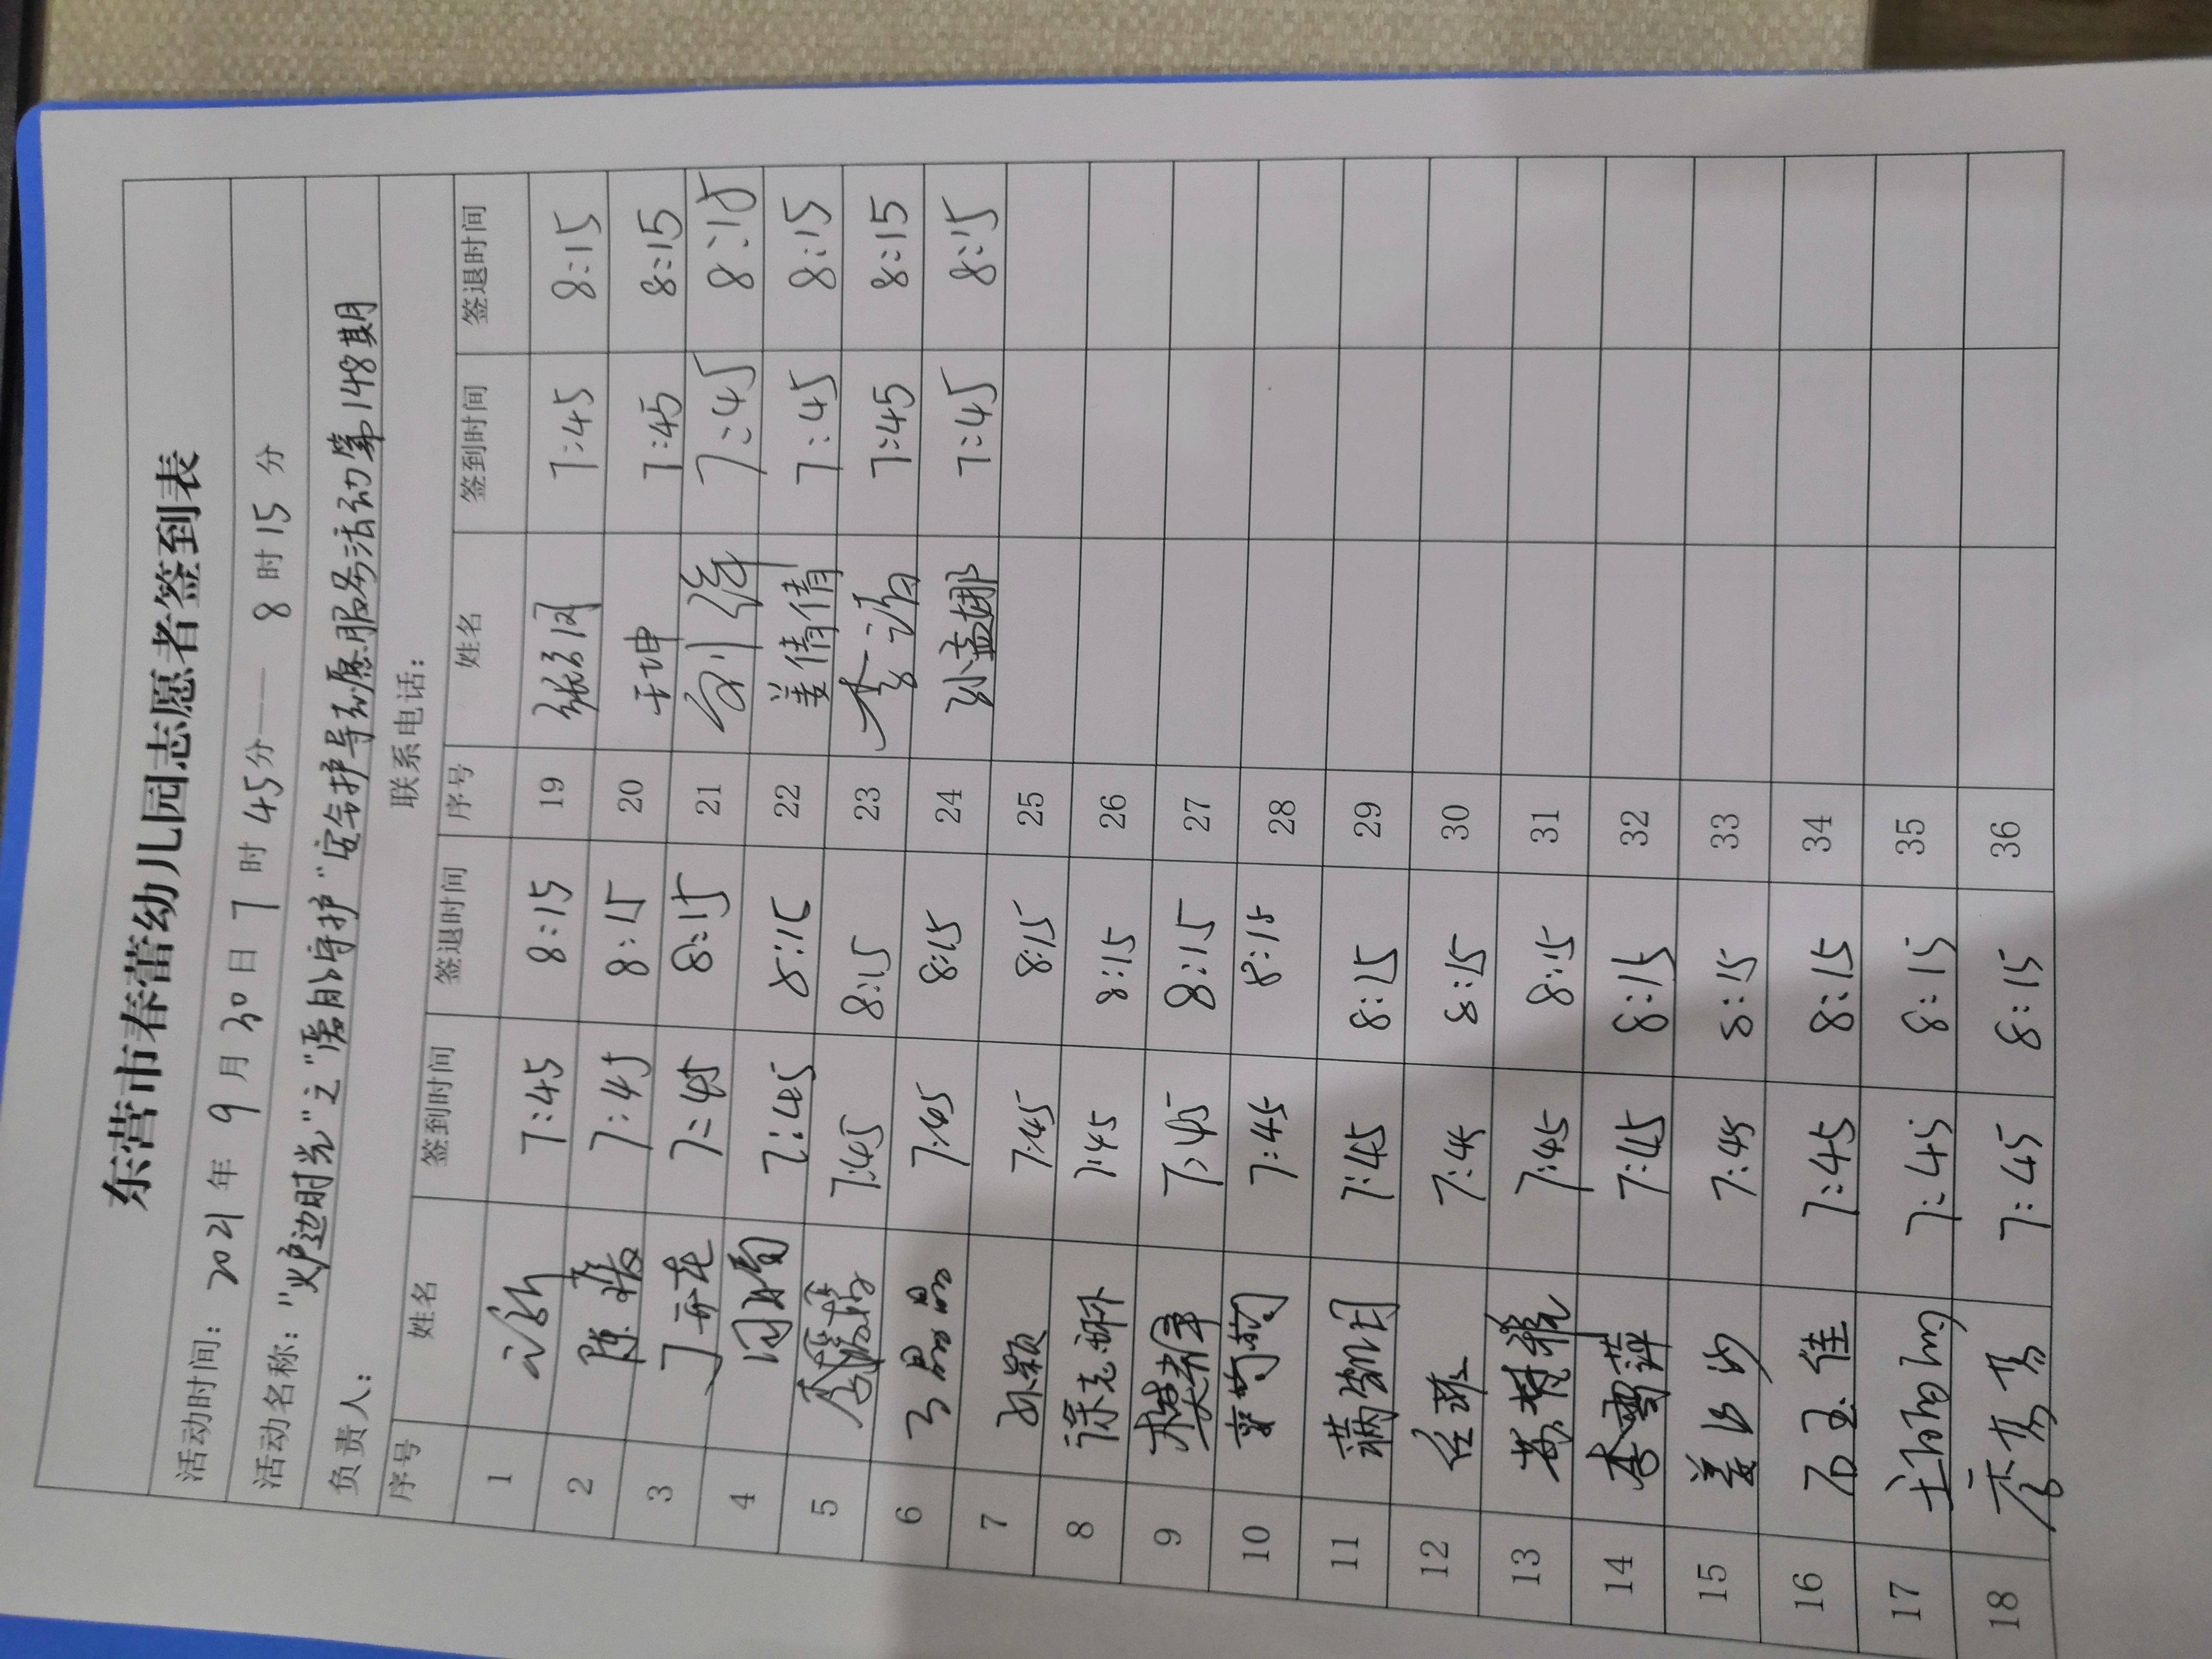 东营市春蕾幼儿园志愿者签到表
活动时间：2021 年 9 月 30 日 7 时 45分—— 8 时 15 分
活动名称："炉边时光"之"暖自守护"安全护导志愿服务活动第148期
负责人： 联系电话：
序号 姓名 签到时间 签退时间 序号 姓名 签到时间 签退时间
1 7:45 8:15 19 7:45 8:15
2 7:45 8:15 20 王坤 7:45 8:15
3 7:45 8:15 21 刘 7:45 8:15
4 7:45 8:15 22 姜倩倩 7:45 8:15
5 7:45 8:15 23 李 7:45 8:15
6 7:45 8:15 24 孙孟娜 7:45 8:15
7 孙颖 7:45 8:15 25
8 徐志 7:45 8:15 26
9 7:45 8:15 27
10 7:45 8:15 28
11 7:45 8:15 29
12 任 7:45 8:15 30
13 7:45 8:15 31
14 李雪萍 7:45 8:15 32
15 姜 7:45 8:15 33
16 石玉佳 7:45 8:15 34
17 王 7:45 8:15 35
18 李 7:45 8:15 36